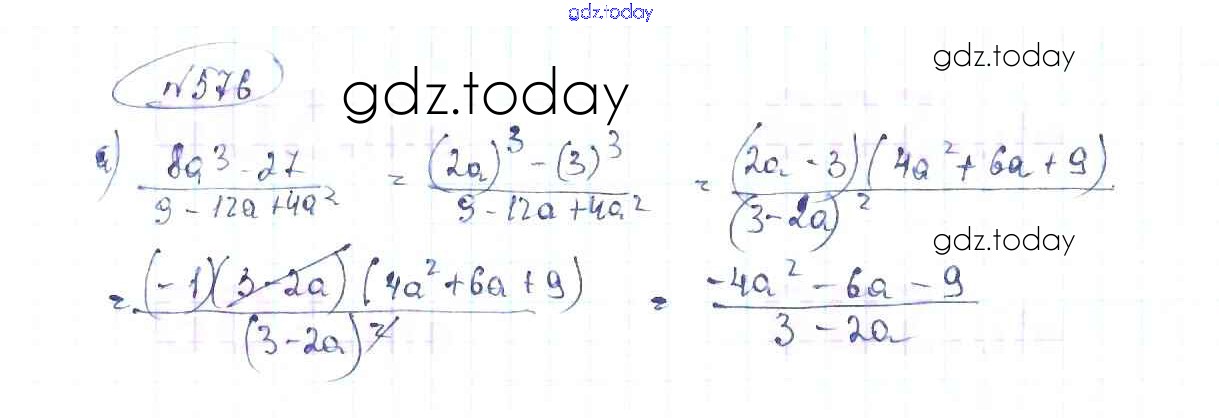 gdz.today
gdz.today
№576
gdz.today
а) (8a³ - 27)/(9 - 12a + 4a²) = ((2a)³ - (3)³)/(9 - 12a + 4a²) = ((2a - 3)(4a² + 6a + 9))/((3 - 2a)²)
gdz.today
= ((-1)(3 - 2a)(4a² + 6a + 9))/((3 - 2a)²) = (-4a² - 6a - 9)/(3 - 2a)